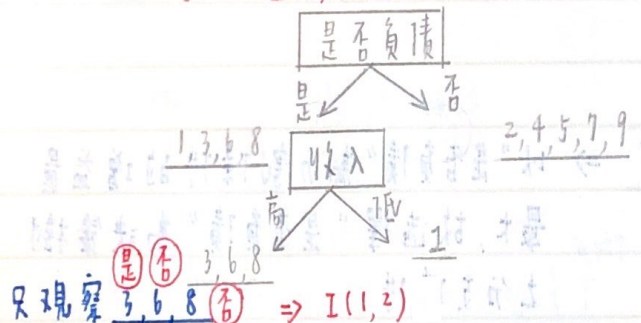 是否負債
是 否
1,3,6,8 收入 2,4,5,7,9
高 低
3,6,8 1
是 否
只觀察 3,6,8 否 ⇒ I(1,2)